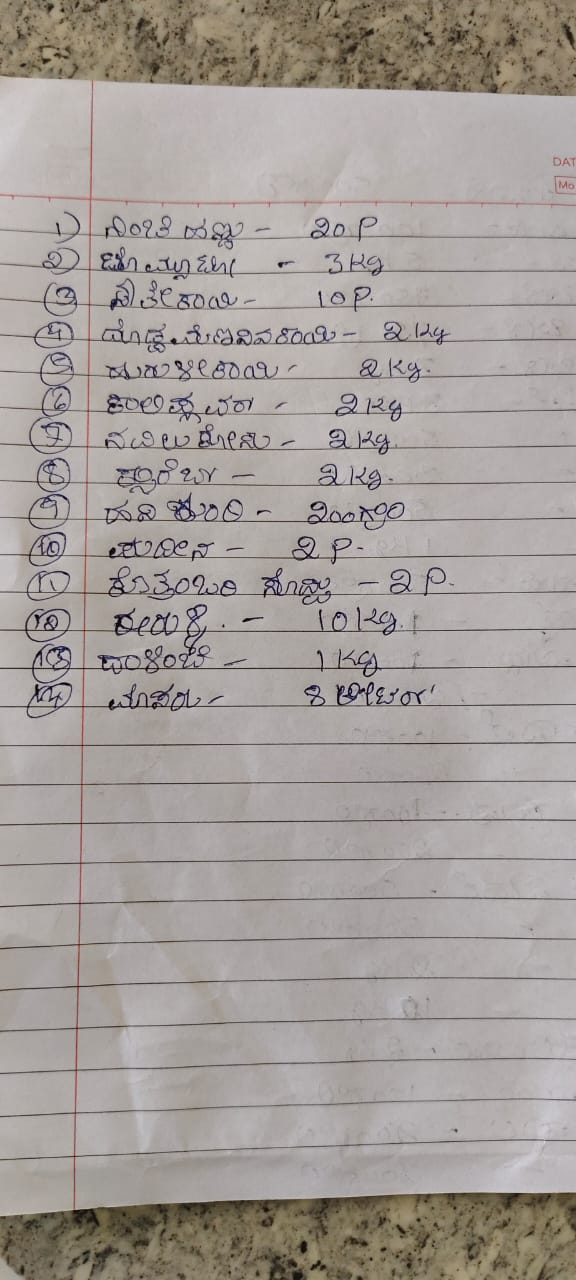 DAT
Mo
1) ನಿಂಬೆ ಹಣ್ಣು - 20 P
2) ಟೊಮ್ಯಾಟೋ - 3 Kg
3) ಸೌತೇಕಾಯಿ - 10 P.
4) ದೊಡ್ಡ ಮೆಣಸಿನಕಾಯಿ - 2 Kg
5) ಹುರುಳೀಕಾಯಿ - 2 Kg.
6) - 2 Kg
7) ನವಿಲುಕೋಸು - 2 Kg.
8) ಕ್ಯಾರೆಟ್ - 2 Kg.
9) ಹಸಿ ಶುಂಠಿ - 200ಗ್ರಾಂ
10) ಪುದೀನ - 2 P.
11) ಕೊತ್ತಂಬರಿ ಸೊಪ್ಪು - 2 P.
12) - 10 Kg.
13) - 1 Kg
14) ಮೊಸರು - 8 ಲೀಟರ್